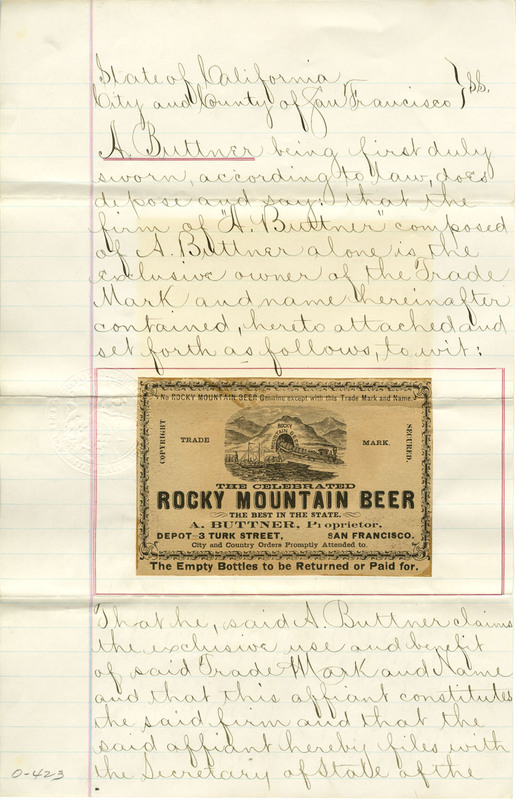 State of California
City and County of San Francisco } SS.
A. Buttner being first duly
sworn, according to law, does
depose and say: that the
firm of "A. Buttner" composed
of A. Buttner alone is the
exclusive owner of the Trade
Mark and name hereinafter
contained, hereto attached and
set forth as follows, to wit:
No ROCKY MOUNTAIN BEER Genuine except with this Trade Mark and Name.
COPYRIGHT
TRADE
ROCKY
MOUNTAIN BEER
MARK.
SECURED.
THE CELEBRATED
ROCKY MOUNTAIN BEER
THE BEST IN THE STATE.
A. BUTTNER, Proprietor.
DEPOT 3 TURK STREET, SAN FRANCISCO.
City and Country Orders Promptly Attended to.
The Empty Bottles to be Returned or Paid for.
That he, said A. Buttner claims
the exclusive use and benefit
of said Trade Mark and Name
and that this affiant constitutes
the said firm and that the
said affiant hereby files with
the Secretary of State of the
0-423